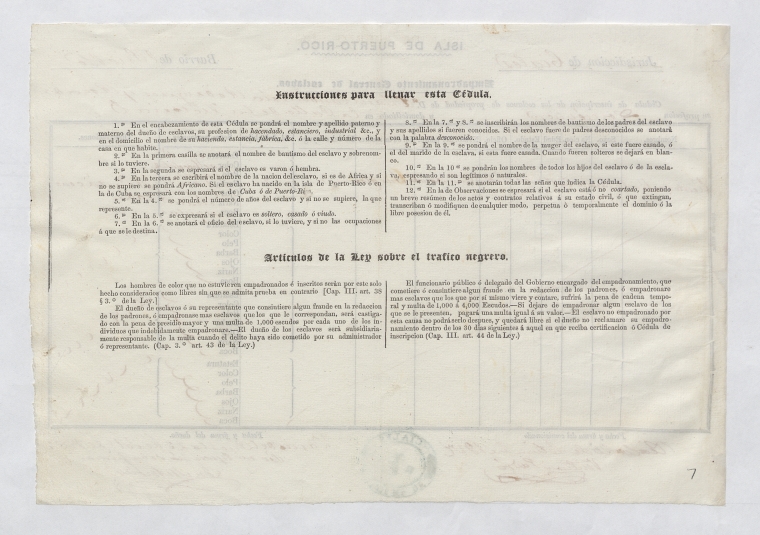 Instrucciones para llenar esta Cédula.
1.ª En el encabezamiento de esta Cédula se pondrá el nombre y apellido paterno y
materno del dueño de esclavos, su profesion de hacendado, estanciero, industrial &c., y
en el domicilio el nombre de su hacienda, estancia, fábrica, &c. ó la calle y número de la
casa en que habite.
2.ª En la primera casilla se anotará el nombre de bautismo del esclavo y sobrenom-
bre si lo tuviere.
3.ª En la segunda se espresará si el esclavo es varon ó hembra.
4.ª En la tercera se escribirá el nombre de la nacion del esclavo, si es de Africa y si
no se supiere se pondrá Africano. Si el esclavo ha nacido en la isla de Puerto-Rico ó en
la de Cuba se espresará con los nombres de Cuba ó de Puerto-Rico.
5.ª En la 4.ª se pondrá el número de años del esclavo y si no se supiere, la que
represente.
6.ª En la 5.ª se expresará si el esclavo es soltero, casado ó viudo.
7.ª En la 6.ª se anotará el oficio del esclavo, si lo tuviere, y si no las ocupaciones
á que se le destina.
8.ª En la 7.ª y 8.ª se inscribirán los nombres de bautismo de los padres del esclavo
y sus apellidos si fueren conocidos. Si el esclavo fuere de padres desconocidos se anotará
con la palabra desconocida.
9.ª En la 9.ª se pondrá el nombre de la muger del esclavo, si este fuere casado, ó
el del marido de la esclava, si esta fuere casada. Cuando fueren solteros se dejará en blan-
co.
10.ª En la 10.ª se pondrán los nombres de todos los hijos del esclavo ó de la escla-
va, expresando si son legítimos ó naturales.
11.ª En la 11.ª se anotarán todas las señas que indica la Cédula.
12.ª En la de Observaciones se espresará si el esclavo está ó no coartado, poniendo
un breve resúmen de los actos y contratos relativos á su estado civil, ó que extingan,
transcriban ó modifiquen de cualquier modo, perpetua ó temporalmente el dominio ó la
libre posesion de él.
Artículos de la Ley sobre el trafico negrero.
Los hombres de color que no estuvieren empadronados é inscritos serán por este solo
hecho considerados como libres sin que se admita prueba en contrario [Cap. III. art. 38
§ 3.º de la Ley.]
El dueño de esclavos ó su representante que comietiere algun fraude en la redaccion
de los padrones, ó empadronase mas esclavos que los que le correspondan, será castiga-
do con la pena de presidio mayor y una multa de 1,000 escudos por cada uno de los in-
dividuos que indebidamente empadronase.—El dueño de los esclavos será subsidiaria-
mente responsable de la multa cuando el delito haya sido cometido por su administrador
ó representante. (Cap. 3.º art. 43 de la Ley.)
El funcionario público ó delegado del Gobierno encargado del empadronamiento, que
cometiere ó comietiere algun fraude en la redaccion de los padrones, ó empadronare
mas esclavos que los que por si mismo viere y contare, sufrirá la pena de cadena tempo-
ral y multa de 1,000 á 4,000 Escudos.—Si dejare de empadronar algun esclavo de los
que se le presenten, pagará una multa igual á su valor.—El esclavo no empadronado por
esta causa no podrá serlo despues, y quedará libre si el dueño no reclamare su empadro-
namiento dentro de los 30 dias siguientes á aquel en que reciba certificacion ó Cédula de
inscripcion (Cap. III. art. 44 de la Ley.)
7